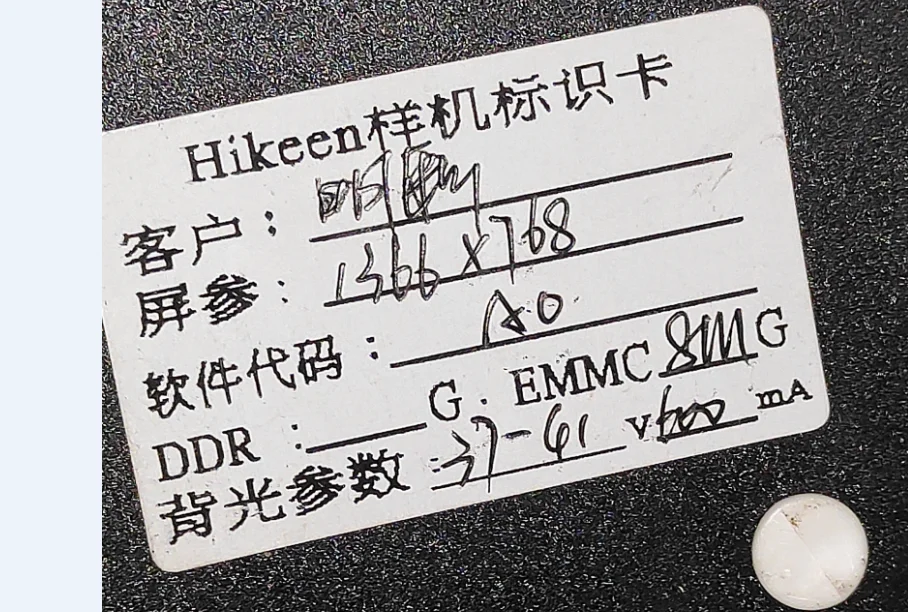 Hikeen样机标识卡
客户:
屏参: 1366×768
软件代码: A0
DDR :____G. EMMC 8M G
背光参数: 37-61 V 600 mA